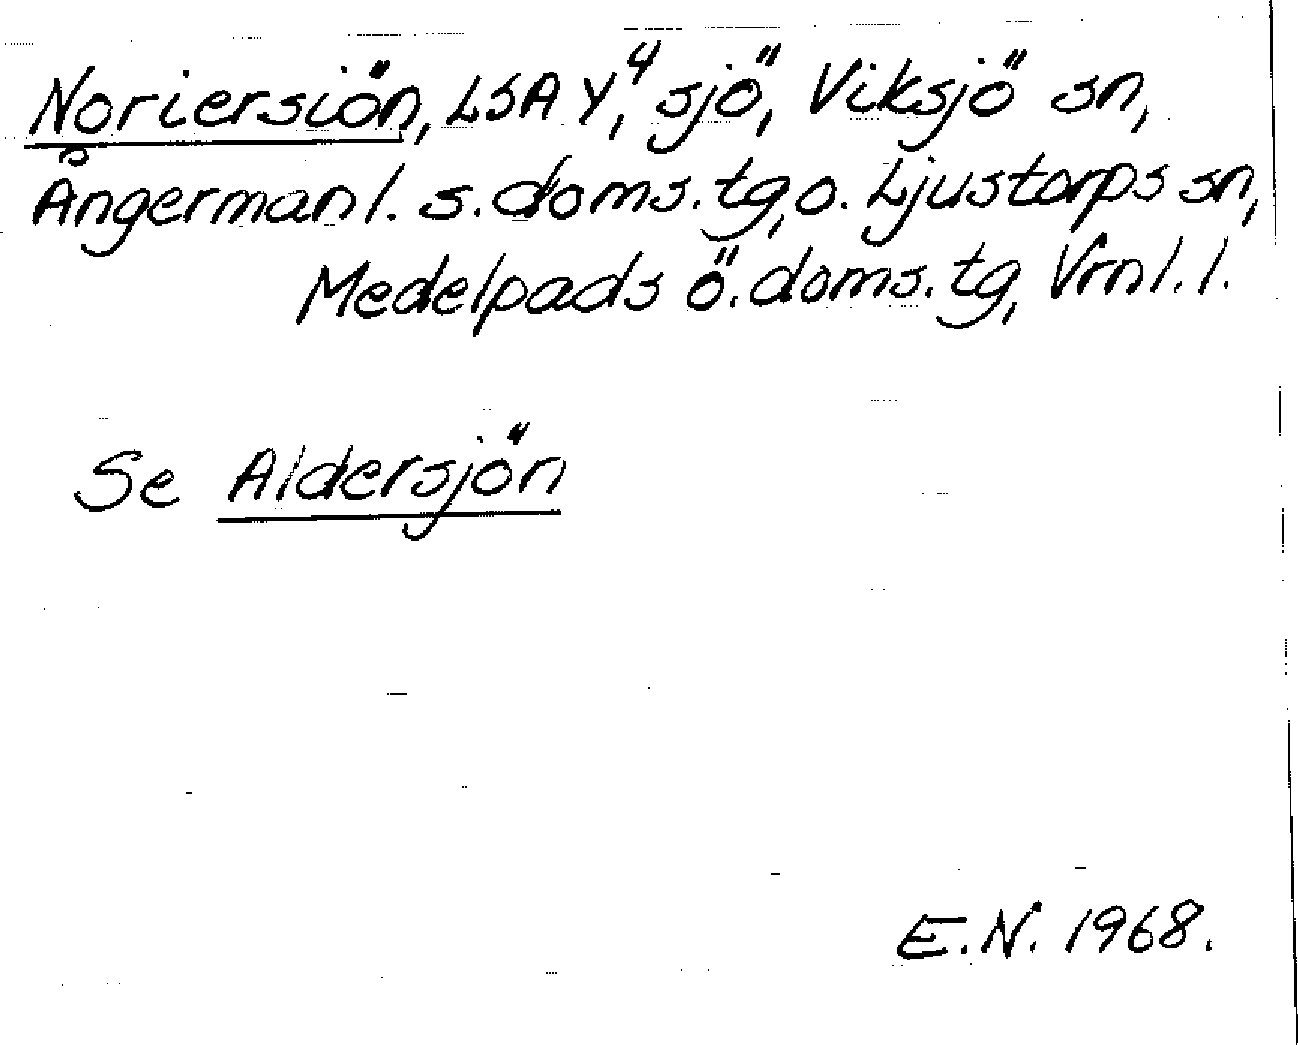 Noriersiön, LSA Y⁴, sjö, Viksjö sn,
Ångermanl. s. doms. tg, o. Ljustorps sn,
Medelpads ö. doms. tg, Vrnl. l.
Se Aldersjön
E.N. 1968.